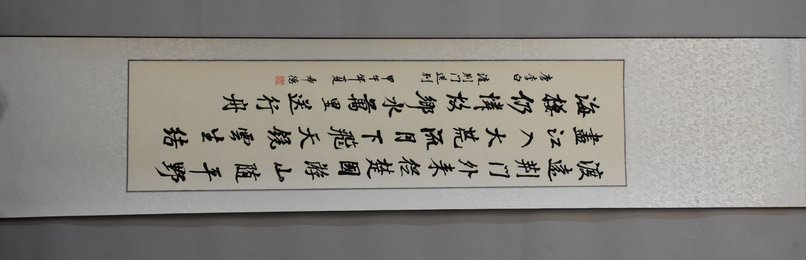 渡遠荆門外来從楚國游山随平野
盡江入大荒流月下飛天鏡雲生結
海樓仍憐故鄉水萬里送行舟
唐李白 渡荆門送别 甲午 夏